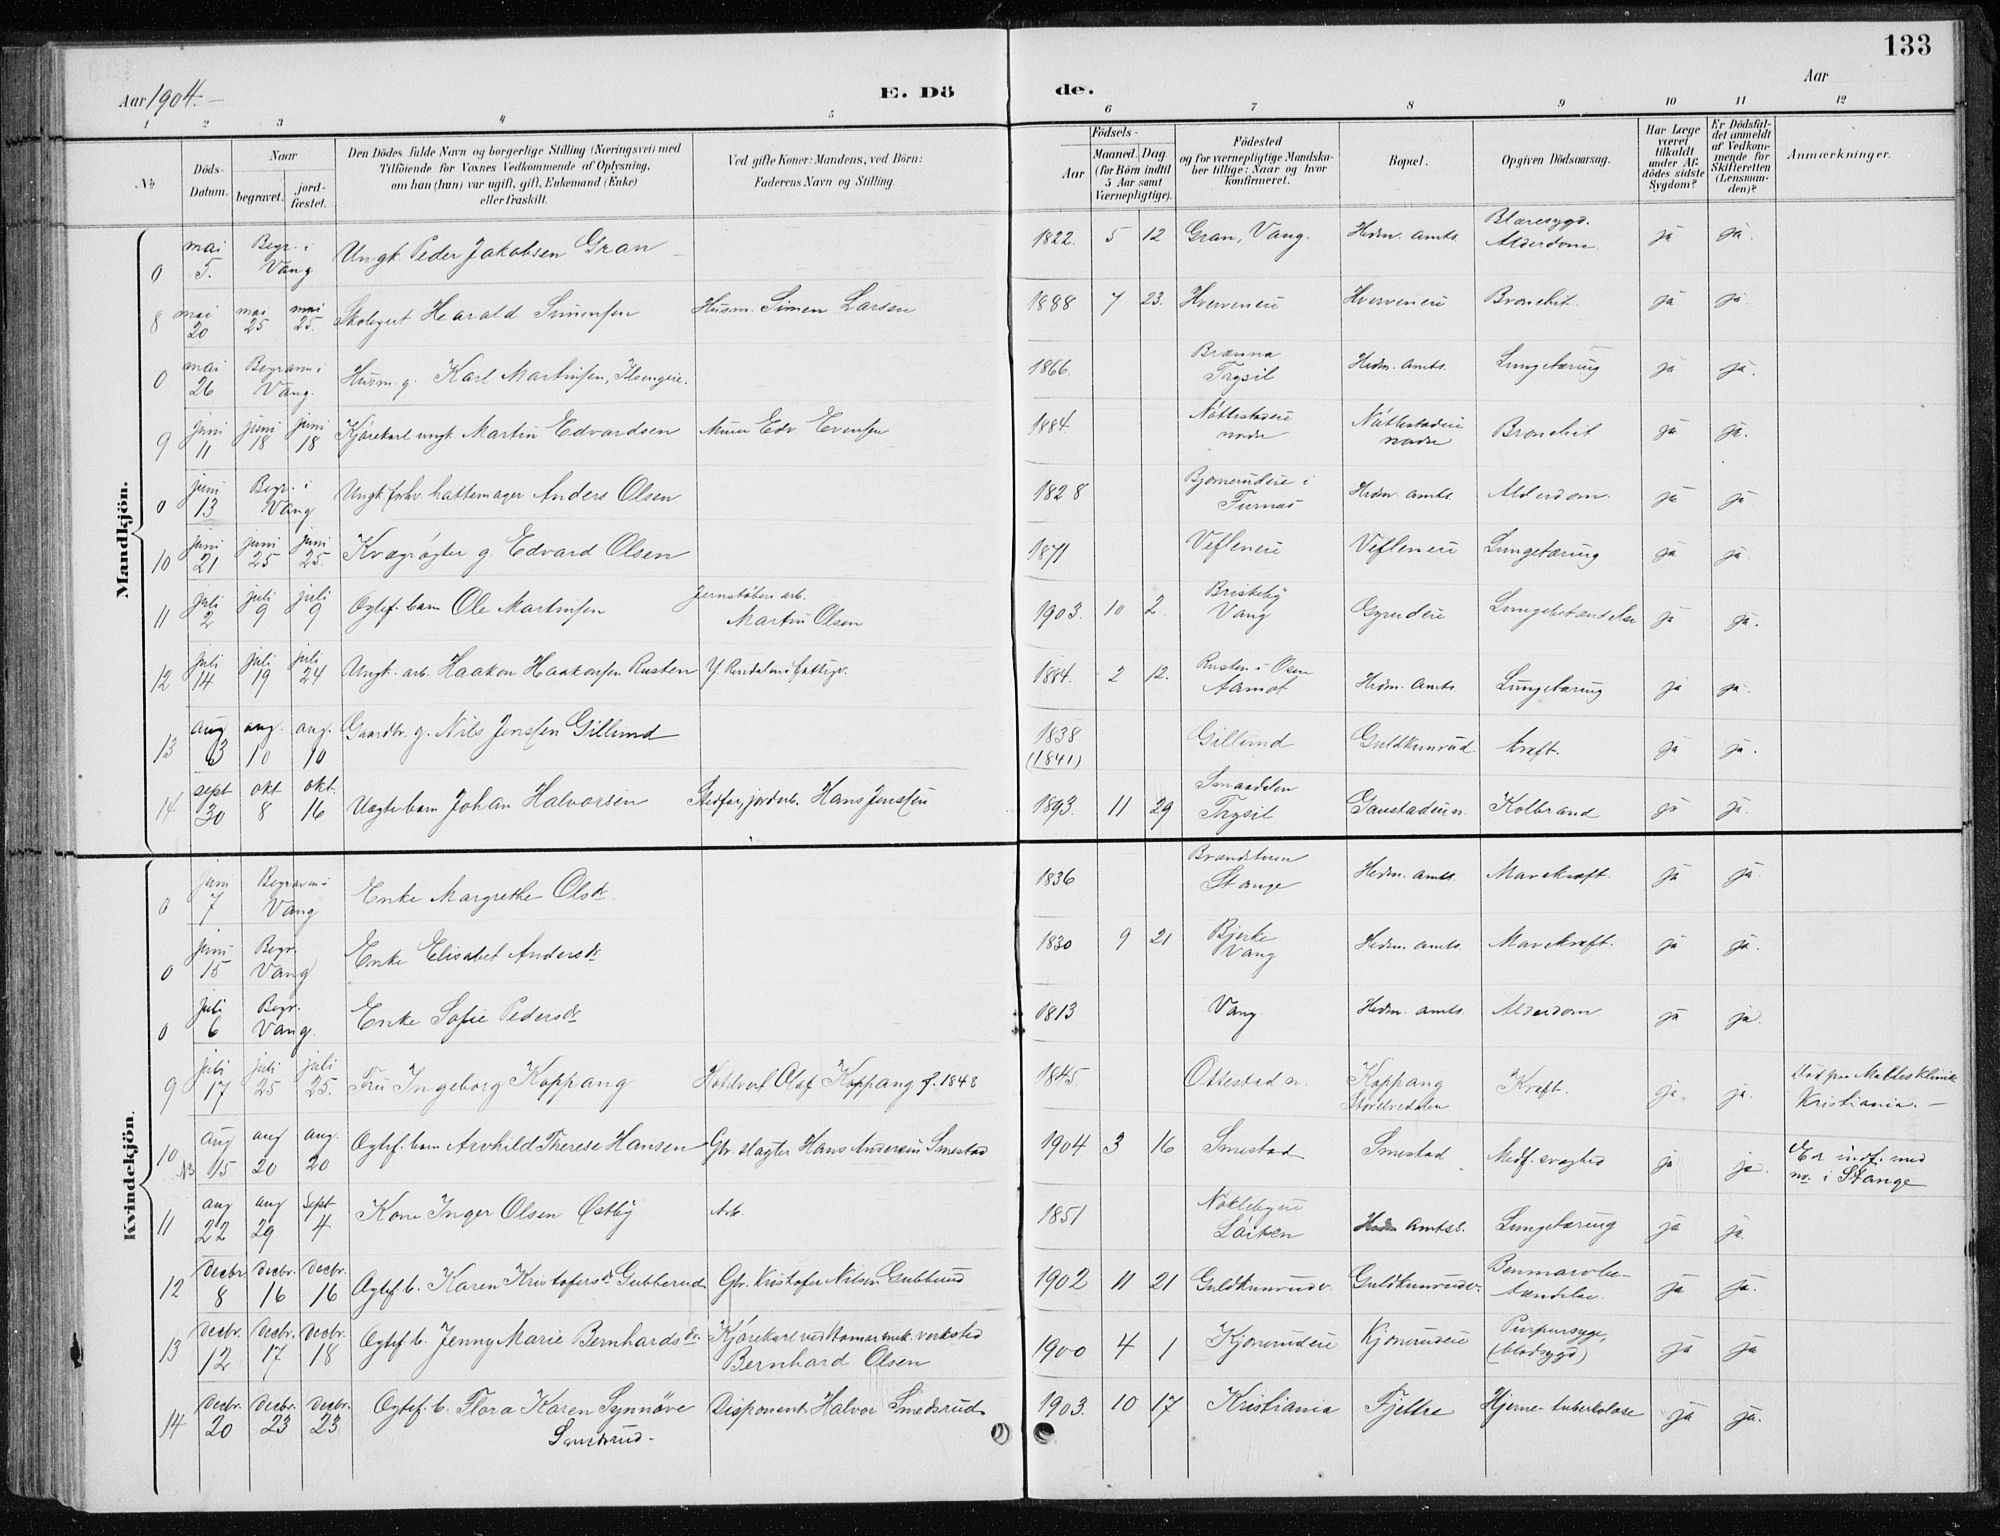 133
Aar 1904. –
E. Dö
de.
Aar
1 2 3 4 5 6 7 8 9 10 11 12
№
Döds-
Datum.
Naar
begravet.
jord-
fæstet.
Den Dödes fulde Navn og borgerlige Stilling (Næringsvei) med
Tilföiende for Voxnes Vedkommende af Oplysning,
om han (hun) var ugift, gift, Enkemand (Enke)
eller fraskilt.
Ved gifte Koner: Mandens, ved Börn:
Faderens Navn og Stilling.
Födsels-
Aar
Maaned. Dag
(for Börn indtil
5 Aar samt
Værnepligtige).
Födested
og for værnepligtige Mandska-
ber tillige: Naar og hvor
konfirmeret.
Bopæl.
Opgiven Dödsaarsag.
Har Læge
været
tilkaldt
under Af-
dödes sidste
Sygdom?
Er Dödsfal-
det anmeldt
af Vedkom-
mende for
Skifteretten
(Lensman-
den)?
Anmærkninger.
Mandkjön.
0 mai 5. Begr. i Vang Ungk. Peder Jakobsen Gran 1822. 5 12 Gran, Vang. Hedm. amts. Blæresygd. Alderdom. ja ja.
8 mai 20 mai 25 mai 25. Skolegut Harald Simensen Husm. Simen Larsen 1888 7 23. Hverveneie Hverveneie Bronchit. ja ja.
0 mai 26 Begraven i Vang. Husm. g. Karl Martinsen, Ilsengeie. 1866. Brænna Trysil Hedm. amts. Lungetæring ja ja.
9 juni 11 juni 18 juni 18 Kjørekarl ungk. Martin Edvardsen Murer Edv Evensen 1884. Nøttestadeie nordre Nøttestadeie nordre Bronchit ja ja.
0 juni 13 Begr. i Vang Ungk. forhv. hattemager Anders Olsen 1828 Bjørnerudeie i Furnæs Hedm. amts. Alderdom. ja ja
10 juni 21 juni 25 juni 25. Kvægrøgter g. Edvard Olsen 1871 Vefleneie Vefleneie Lungetæring ja ja.
11 juli 2 juli 9 juli 9 Ogtef. barn Ole Martinsen Jernstøberiarb. Martin Olsen 1903. 10 2. Bristeby Vang Gyrudeie Lungebetændelse ja ja.
12 juli 14 juli 19 juli 24 Ungk. arb. Haakon Haakonsen Rusten Y. Rendalens fattigv. 1884. 2 12. Rusten i Osen Aamot Hedm. amts. Lungetæring ja ja.
13 aug 3 aug. 10 aug. 10 Gaardbr. g. Nils Jenssen Gillund 1838 (1841) Gillund Guldkunrud Kræft. ja ja.
14 sept 30 okt 8 okt. 16 Uægte barn Johan Halvorsen Stedfar, jordarb. Hans Jenssen 1893. 11 29 Smaadalen Trysil Gaustadeie n. Kolbrand ja ja.
Kvindekjön.
0 juni 7 Begraven i Vang Enke Margrethe Olsdr. 1836 Brandstuen Stange Hedm. amts. Mavekræft. ja ja.
0 juni 15 Begr. Vang Enke Elisabet Andersdr. 1830 9 21 Bjerke Vang Hedm. amts. Mavekræft. ja ja.
0 juli 6 Begr. Vang. Enke Sofie Pedersdr 1813 Vang. Hedm. amts. Alderdom ja ja.
9 juli 17 juli 25 juli 25. Fru Ingeborg Koppang Hotelvert Olaf Koppang f. 1848 1845. Ottestad n. Koppang Storelvedalen Kræft. ja ja. Død paa Malthes Klinik Kristiania. –
10 NB aug 15 aug 20 aug. 20 Ogtef. barn Arnhild Therese Hansen Gbr. slagter Hans Andersen Smestad 1904 3 16 Smestad Smestad Medf. svaghed ja ja. Er indf. med no. i Stange
11 aug 22 aug 29 sept 4 Kone Inger Olsen Østby Arb. 1851 Nøklebyeie Løiten Hedm amtss. Lungetæring ja ja.
12 decbr 8 decbr. 16 decbr. 16 Ogtef. b. Karen Kristofersdr. Gubberud Gbr. Kristofer Nilsen Gubberud 1902 11 21 Guldkunrudv. Guldkunrudv. Benmarvbe- tændelse. ja ja.
13 decbr. 12 decbr. 17 decbr. 18 Ogtef. b. Jenny Marie Bernhardsdr. Kjørekarl ved Hamar mek. verksted Bernhard Olsen 1900 4 1 Kjonerudeie Kjonerudeie Purpursyge, (blodsygd) ja ja
14 decbr. 20 decbr. 23 decbr. 23 Ogtef. b. Flora Karen Synnøve Smedsrud. Disponent Halvor Smedsrud 1903. 10 17 Kristiania Fjetre Hjerne-tuberkulose ja ja.